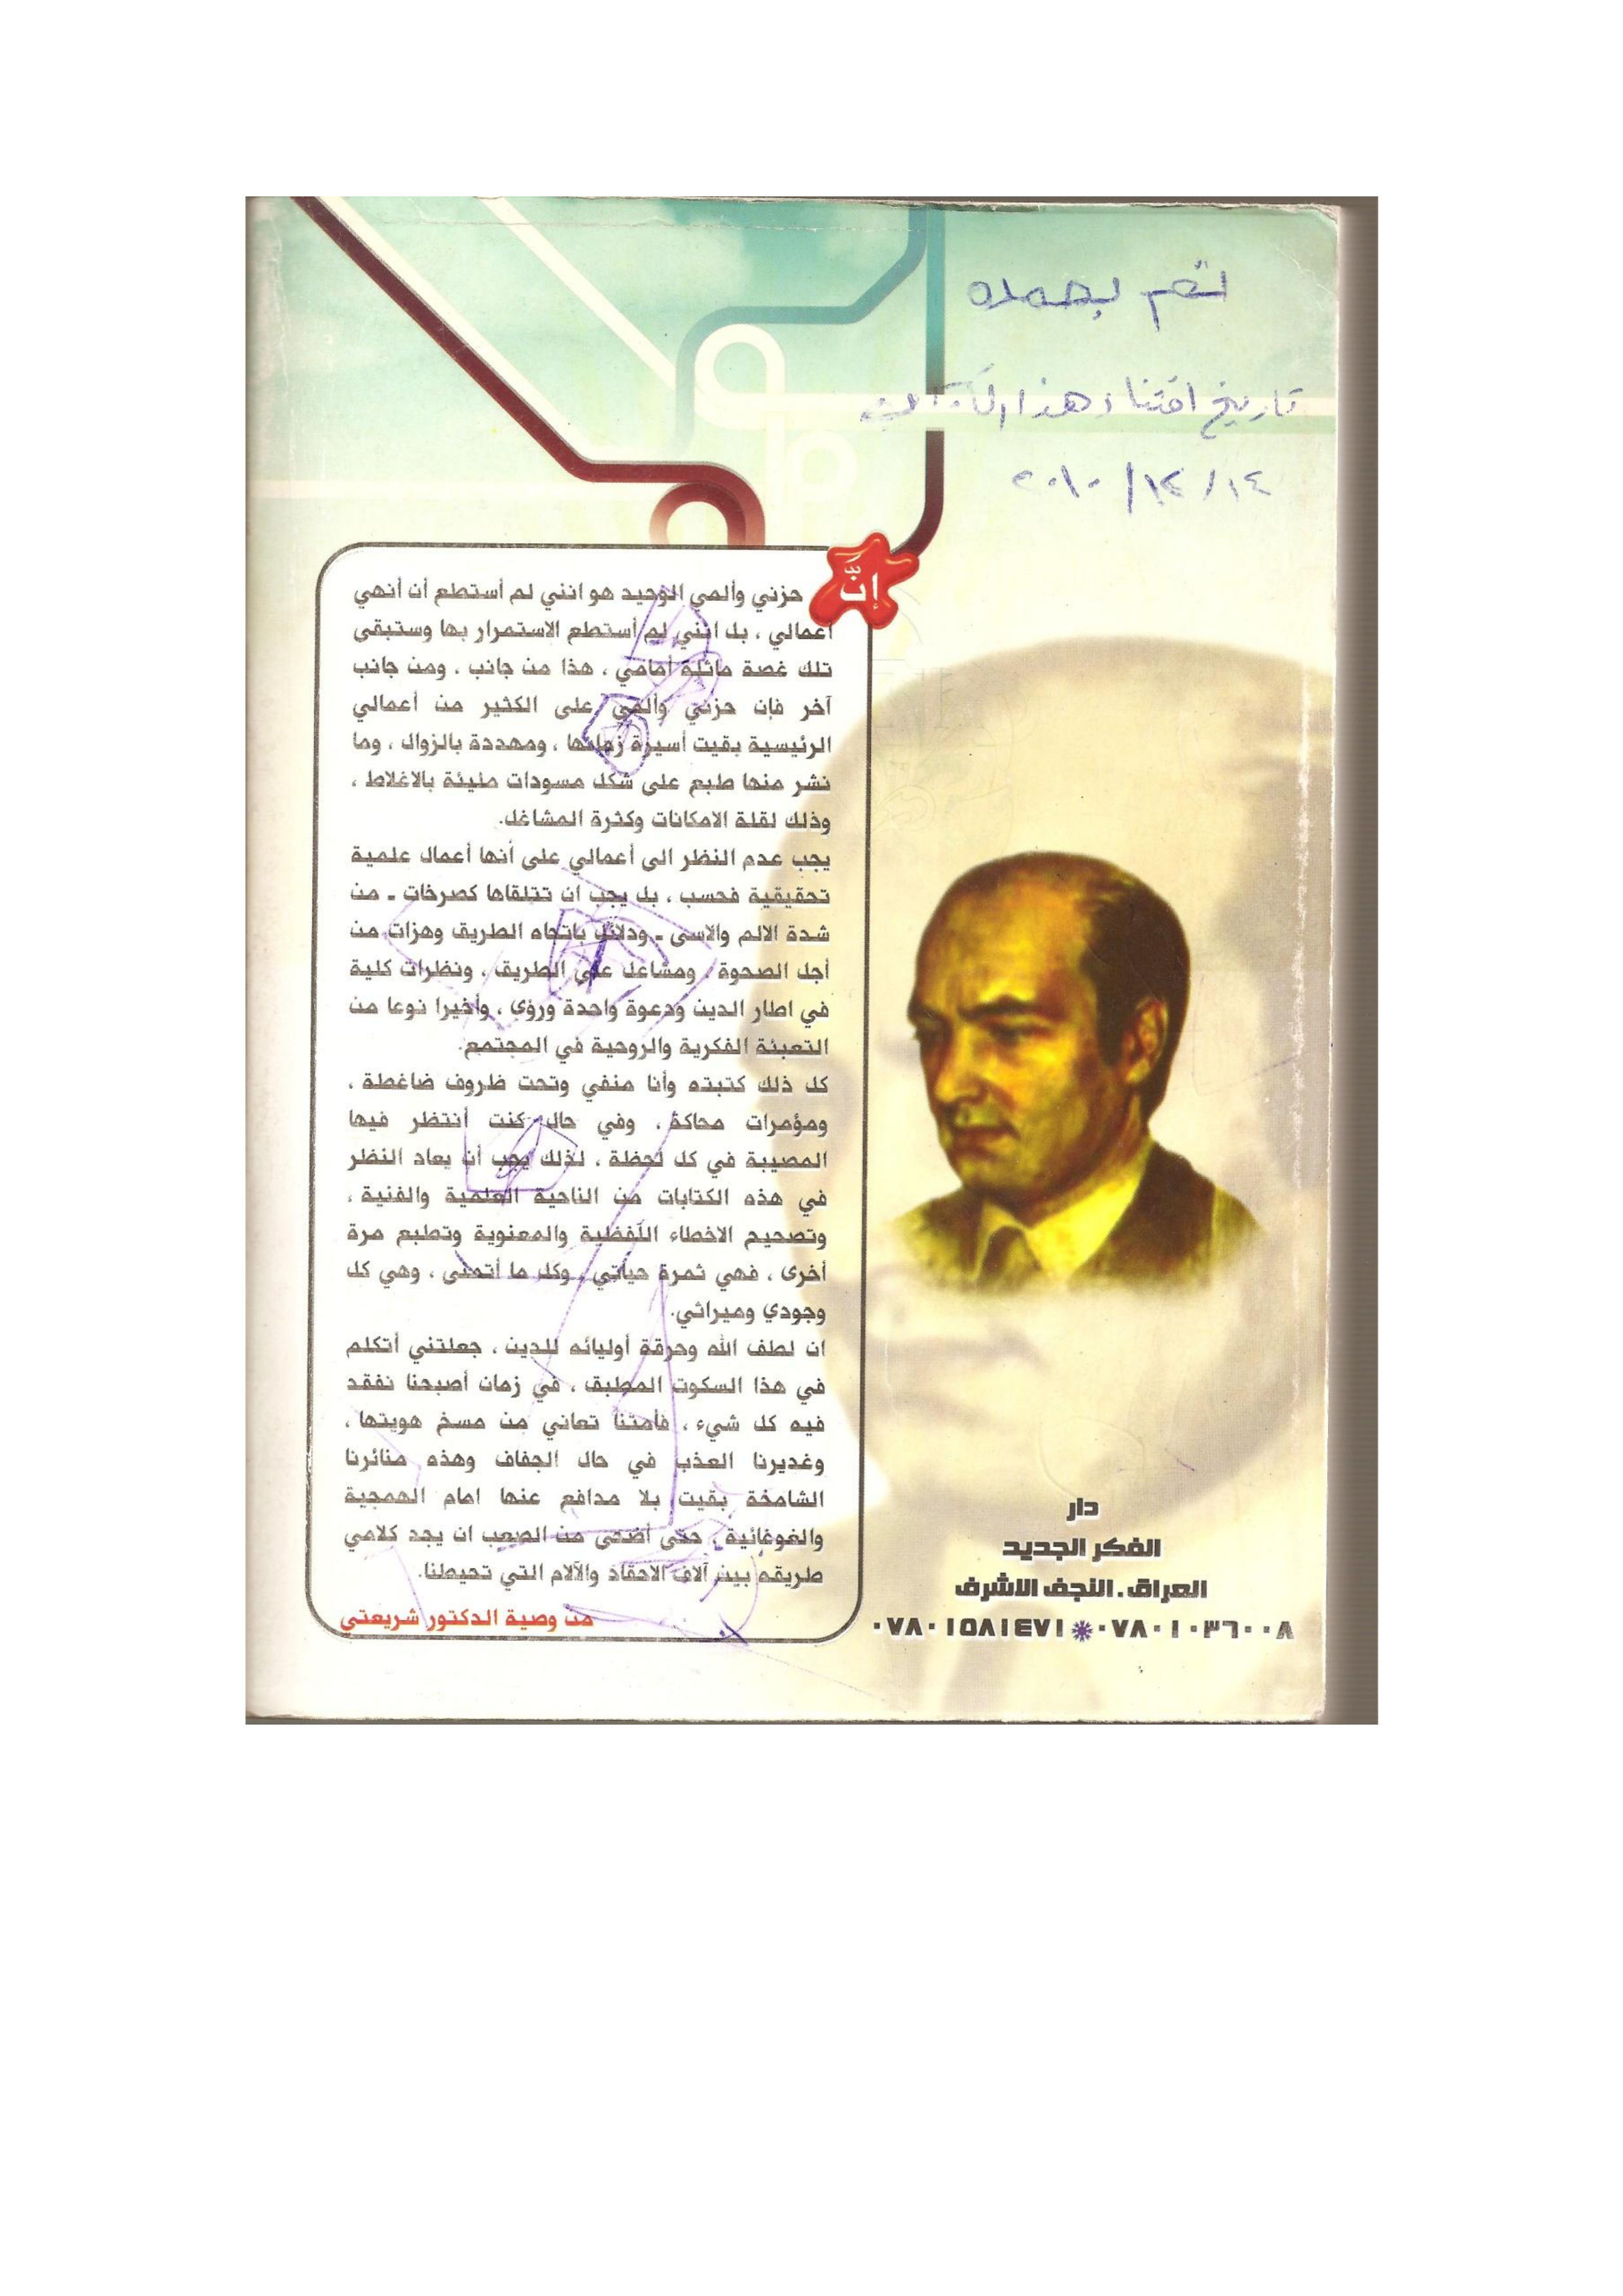 تم بحمده
تاريخ اقتناء هذا الكتاب
١٤/١٢/٢٠١٠
إنَّ حزني وألمي الوحيد هو انني لم أستطع أن أنهي
أعمالي ، بل انني لم أستطع الاستمرار بها وستبقى
تلك غصة ماثلة أمامي ، هذا من جانب ، ومن جانب
آخر فإن حزني وألمي على الكثير من أعمالي
الرئيسية بقيت أسيرة زمانها ، ومهددة بالزوال ، وما
نشر منها طبع على شكل مسودات مليئة بالاغلاط ،
وذلك لقلة الامكانات وكثرة المشاغل.
يجب عدم النظر الى أعمالي على أنها أعمال علمية
تحقيقية فحسب ، بل يجب ان تتلقاها كصرخات ـ من
شدة الالم والاسى ـ ودلائل باتجاه الطريق وهزات من
أجل الصحوة ، ومشاعل على الطريق ، ونظرات كلية
في اطار الدين ودعوة واحدة ورؤى ، وأخيرا نوعا من
التعبئة الفكرية والروحية في المجتمع.
كل ذلك كتبته وأنا منفي وتحت ظروف ضاغطة ،
ومؤمرات محاكة ، وفي حال كنت أنتظر فيها
المصيبة في كل لحظة ، لذلك يجب أن يعاد النظر
في هذه الكتابات من الناحية العلمية والفنية ،
وتصحيح الاخطاء اللفظية والمعنوية وتطبع مرة
أخرى ، فهي ثمرة حياتي ، وكل ما أتمنى ، وهي كل
وجودي وميراثي.
ان لطف الله وحرقة أوليائه للدين ، جعلتني أتكلم
في هذا السكوت المطبق ، في زمان أصبحنا نفقد
فيه كل شيء ، فأمتنا تعاني من مسخ هويتها ،
وغديرنا العذب في حال الجفاف وهذه منائرنا
الشامخة بقيت بلا مدافع عنها امام الهمجية
والغوغائية ، حتى أضحى من الصعب ان يجد كلامي
طريقه بين آلاف الاحقاد والآلام التي تحيطنا.
من وصية الدكتور شريعتي
دار
الفكر الجديد
العراق . النجف الاشرف
٠٧٨٠١٥٨١٤٧١ * ٠٧٨٠١٠٣٦٠٠٨